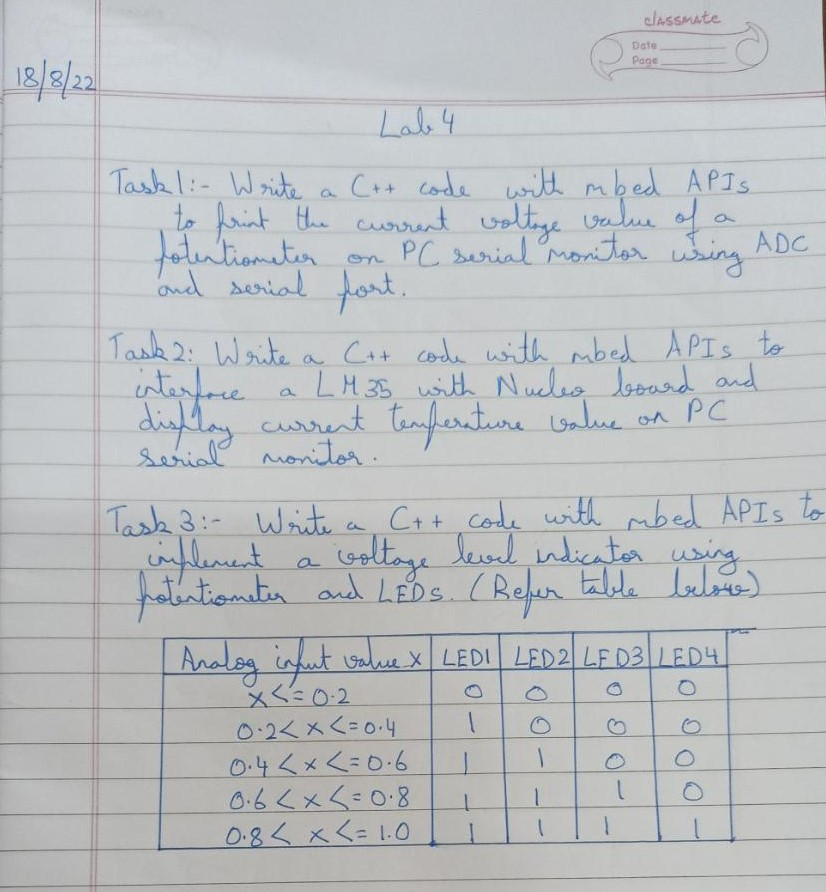 classmate
Date
Page
18/8/22
Lab 4
Task 1:- Write a C++ code with mbed APIs
to print the current voltage value of a
potentiometer on PC serial monitor using ADC
and serial port.
Task 2: Write a C++ code with mbed APIs to
interface a LM35 with Nucleo board and
display current temperature value on PC
serial monitor.
Task 3:- Write a C++ code with mbed APIs to
implement a voltage level indicator using
potentiometer and LEDs. (Refer table below)
Analog input value x LED1 LED2 LED3 LED4
x <= 0.2 0 0 0 0
0.2 < x <= 0.4 1 0 0 0
0.4 < x <= 0.6 1 1 0 0
0.6 < x <= 0.8 1 1 1 0
0.8 < x <= 1.0 1 1 1 1